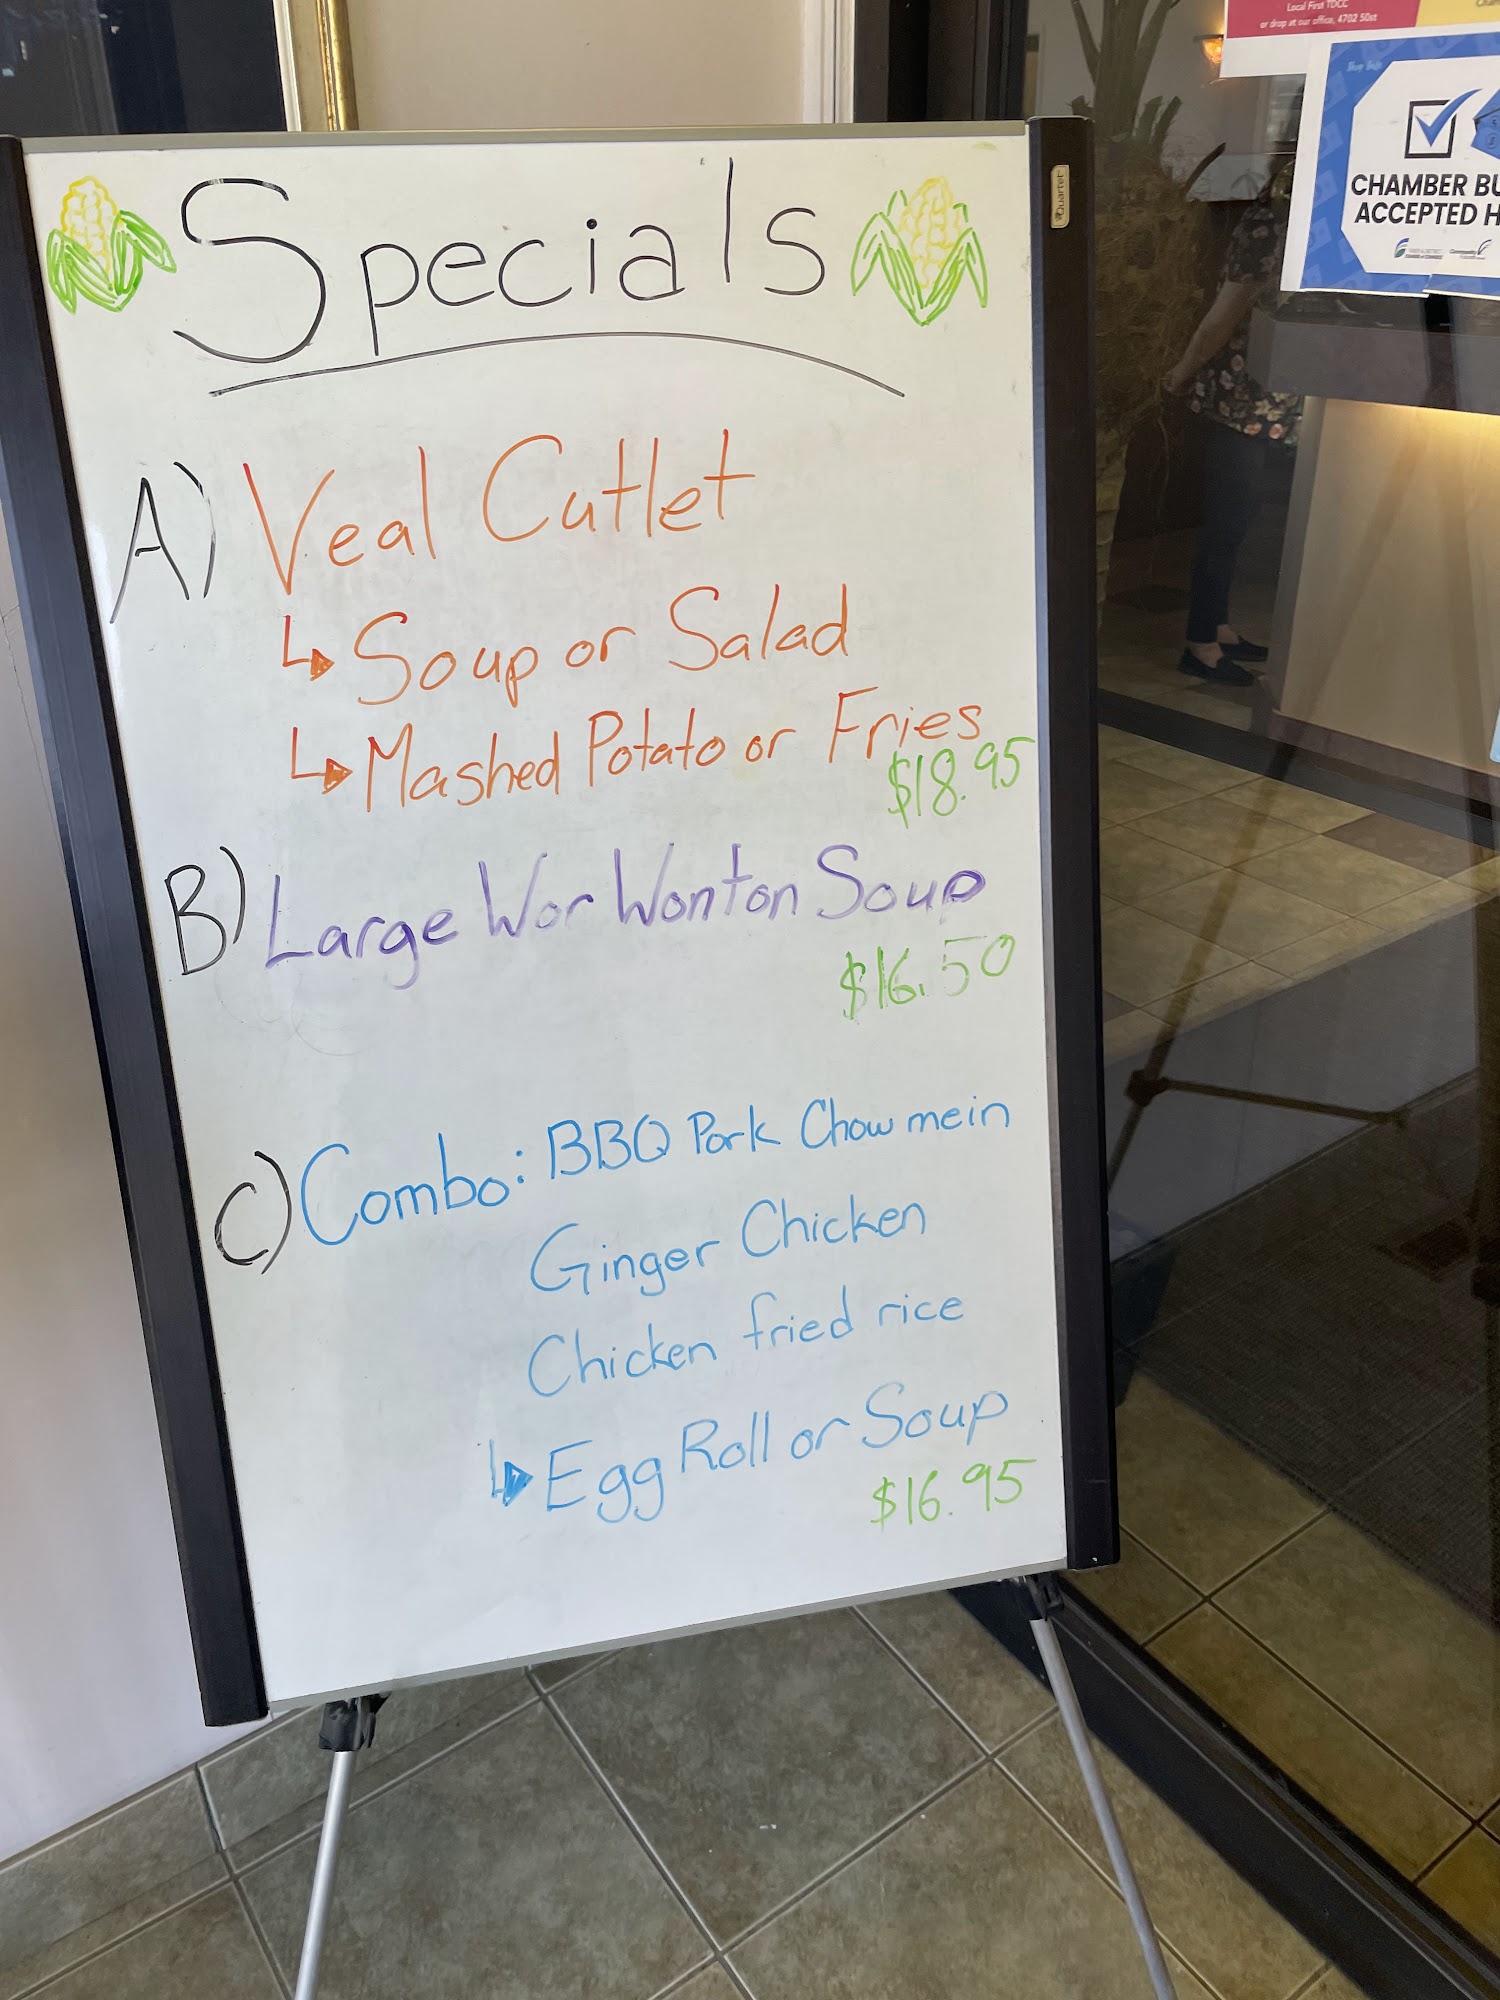 Specials
A) Veal Cutlet
↳ Soup or Salad
↳ Mashed Potato or Fries
$18.95
B) Large Wor Wonton Soup
$16.50
C) Combo: BBQ Pork Chow mein
Ginger Chicken
Chicken fried rice
↳ Egg Roll or Soup
$16.95
Quartet
Local First TDCC
or drop at our office, 4702 50st
CHAMBER BU
ACCEPTED H